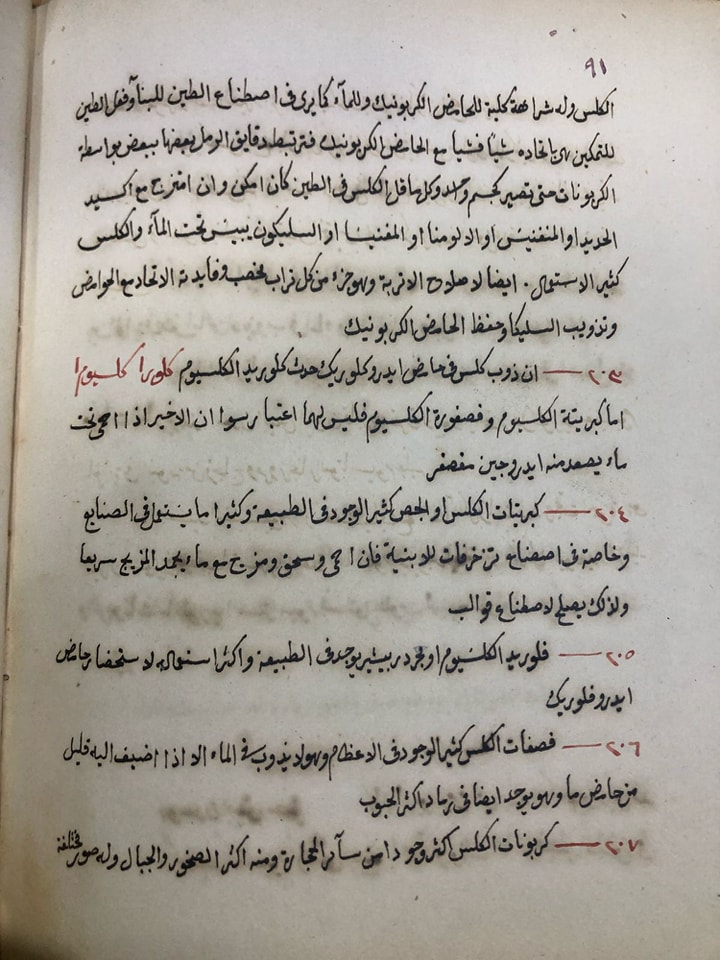 ٩١
الكلس وله شراهة كلية للحامض الكربونيك وللمآء كما يرى فى اصطناع الطين للبنآ وفعل الطين
للتمكين هى باتحاده شيأ فشيأ مع الحامض الكربونيك فترتبط دقايق الرمل بعضها ببعض بواسطة
الكربونات حتى تصير كجسم واحد وكل ما قل الكلس فى الطين كان امكن وان امتزج مع اكسيد
الحديد او المنغنيس او الالومنا او المغنيسا او السليكون ييبس تحت المآء والكلس
كثير الاستعمال . ايضا لاصلاح الاتربة وهو جزء من كل تراب مخصب وفايدته الاتحاد مع الحوامض
وتذويب السليكا وحفظ الحامض الكربونيك
٢٠٣ — ان ذوب كلس فى حامض ايدروكلوريك حدث كلوريد الكلسيوم كلورا كلسيوم
اما كبريتة الكلسيوم وفصفورة الكلسيوم فليس لهما اعتبار سوا ان الاخير اذا احمى تحت
ماء يصعد منه ايدروجين مفصفر
٢٠٤ — كبريتات الكلس او الجص كثير الوجود فى الطبيعة وكثيرا ما يستعمل فى الصنايع
وخاصة فى اصطناع تزخرفات للابنية فان احمى وسحق ومزج مع ماء يجمد المزيج سريعا
ولذلك يصلح لاصطناع قوالب
٢٠٥ — فلوريد الكلسيوم او يوجد فى الطبيعة واكثر استعماله لاستحضار حامض
ايدروفلوريك
٢٠٦ — فصفات الكلس كثير الوجود فى الاعظام وهو لا يذوب فى الماء الا اذا اضيف اليه قليل
من حامض ما وهو يوجد ايضا فى رماد اكثر الحبوب
٢٠٧ — كربونات الكلس اكثر وجودا من سآئر الحجارة ومنه اكثر الصخور والجبال وله صور مختلفة